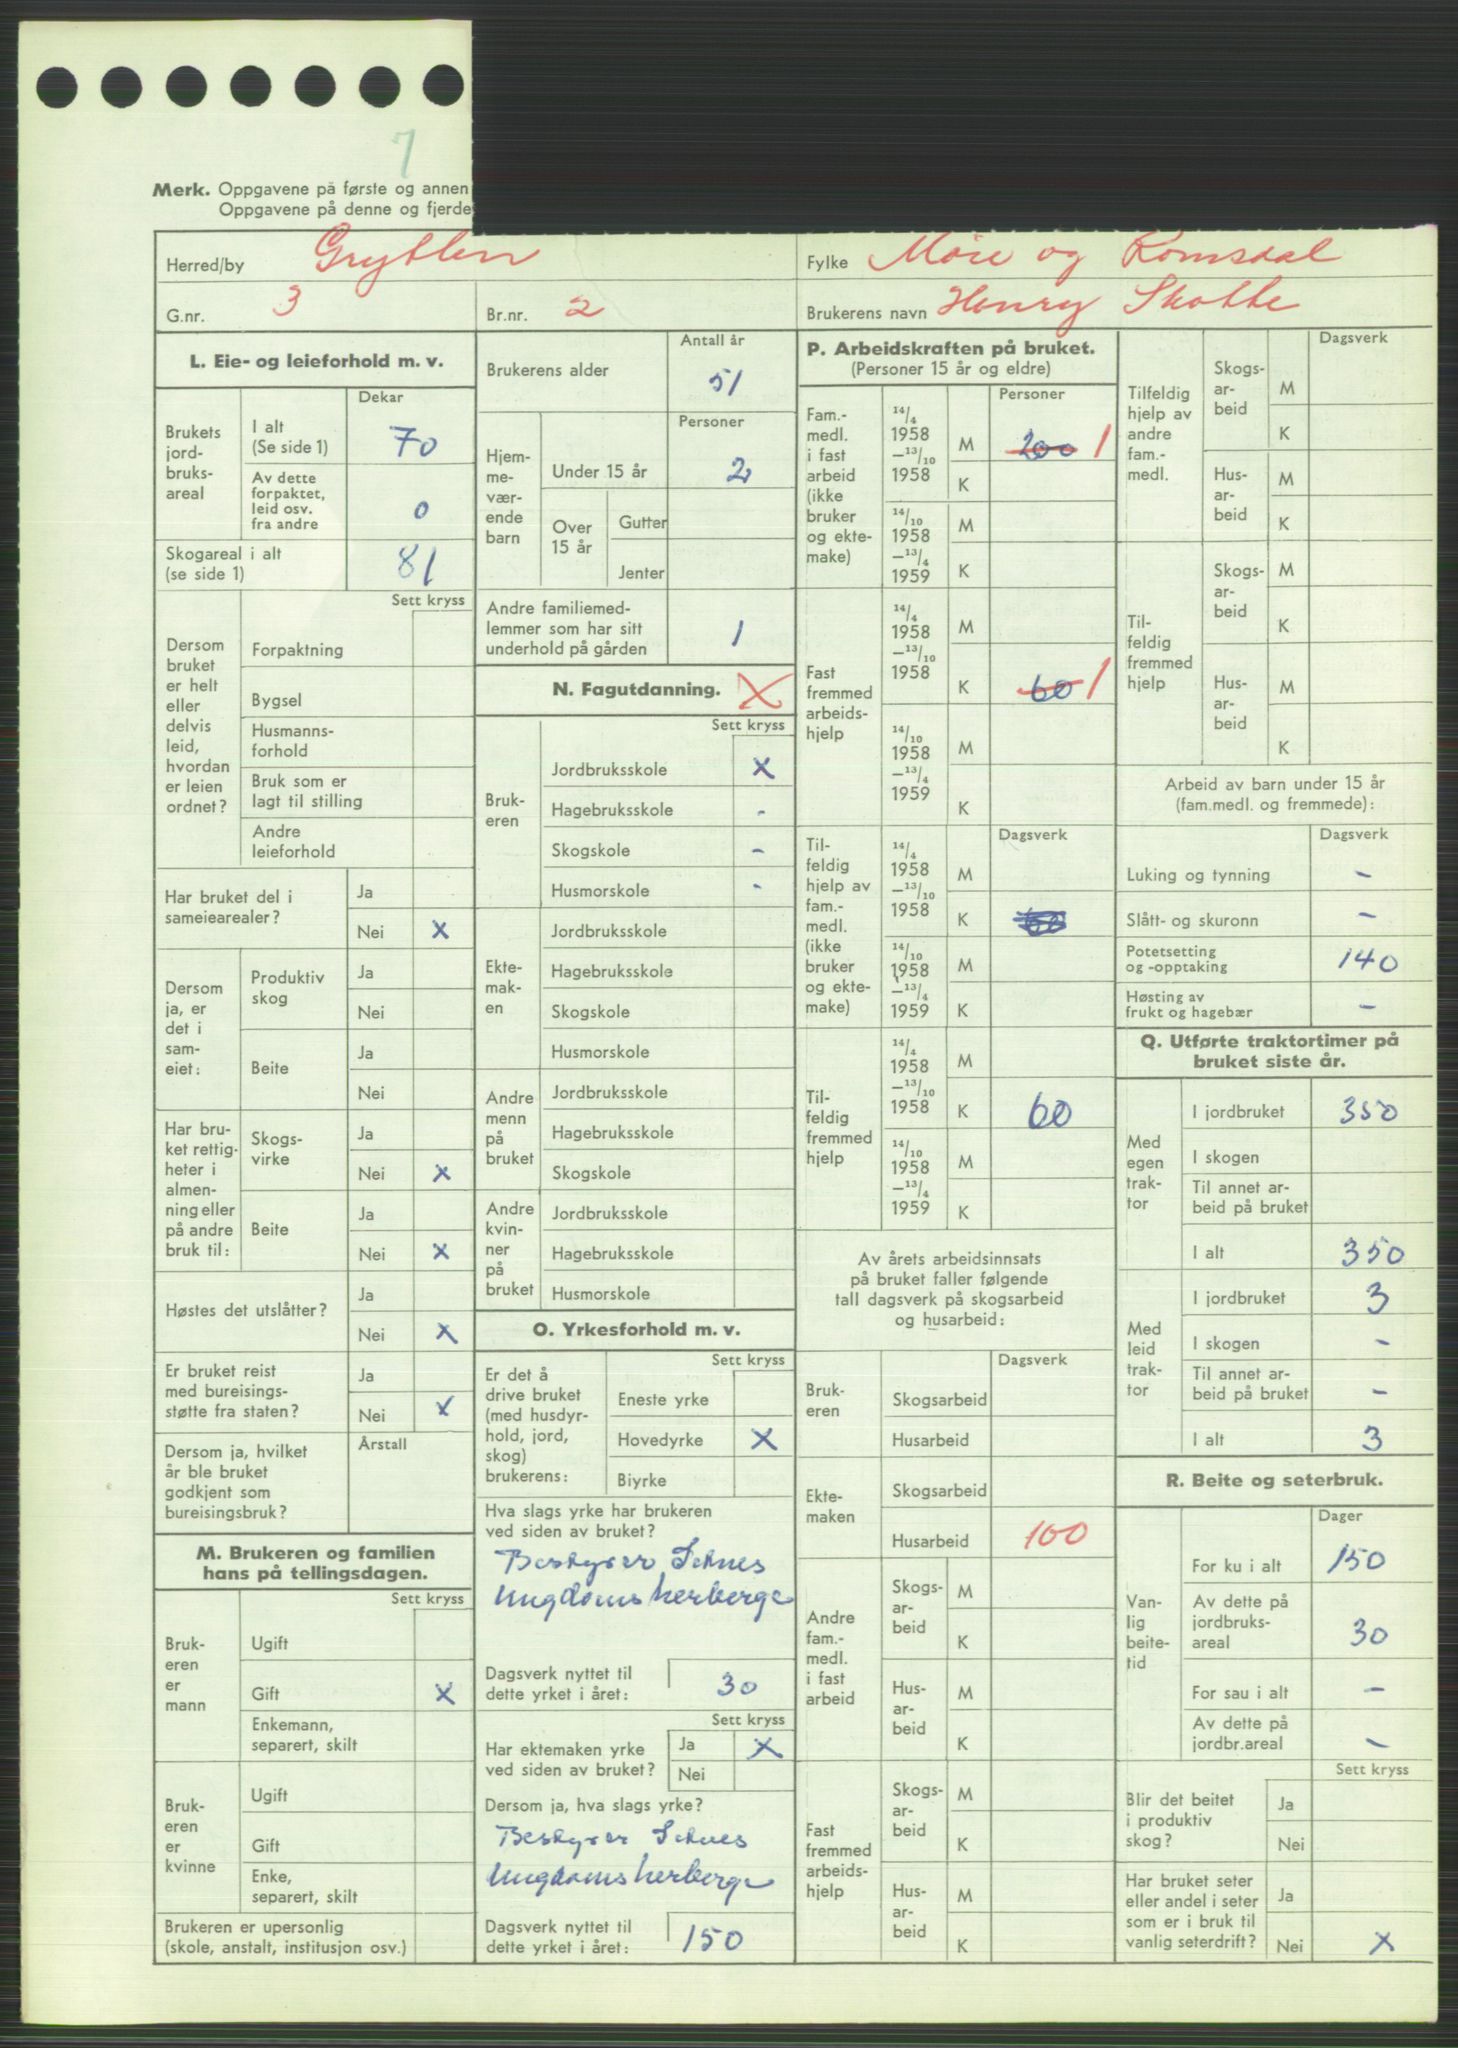 7
Merk. Oppgavene på første og annen
Oppgavene på denne og fjerde
Herred/by Grytten
Fylke Møre og Romsdal
G.nr. 3
Br.nr. 2
Brukerens navn Henry Skotte
L. Eie- og leieforhold m. v.
Dekar
Brukets jord-bruks-areal
I alt (Se side 1) 70
Av dette forpaktet, leid osv. fra andre 0
Skogareal i alt (se side 1) 81
Sett kryss
Dersom bruket er helt eller delvis leid, hvordan er leien ordnet?
Forpaktning
Bygsel
Husmanns-forhold
Bruk som er lagt til stilling
Andre leieforhold
Har bruket del i sameiearealer?
Ja
Nei x
Dersom ja, er det i sam-eiet:
Produktiv skog
Ja
Nei
Beite
Ja
Nei
Har bru-ket rettig-heter i almen-ning eller på andre bruk til:
Skogs-virke
Ja
Nei x
Beite
Ja
Nei x
Høstes det utslåtter?
Ja
Nei x
Er bruket reist med bureisings-støtte fra staten?
Ja
Nei x
Dersom ja, hvilket år ble bruket godkjent som bureisingsbruk?
Årstall
M. Brukeren og familien hans på tellingsdagen.
Sett kryss
Bruk-eren er mann
Ugift
Gift x
Enkemann, separert, skilt
Bruk-eren er kvinne
Ugift
Gift
Enke, separert, skilt
Brukeren er upersonlig (skole, anstalt, institusjon osv.)
Antall år
Brukerens alder 51
Personer
Hjem-me-vær-ende barn
Under 15 år 2
Over 15 år
Gutter
Jenter
Andre familiemed-lemmer som har sitt underhold på gården 1
N. Fagutdanning. X
Sett kryss
Bruk-eren
Jordbruksskole x
Hagebruksskole -
Skogskole -
Husmorskole -
Ekte-mak-en
Jordbruksskole
Hagebruksskole
Skogskole
Husmorskole
Andre menn på bruket
Jordbruksskole
Hagebruksskole
Skogskole
Andre kvin-ner på bruket
Jordbruksskole
Hagebruksskole
Husmorskole
O. Yrkesforhold m. v.
Sett kryss
Er det å drive bruket (med husdyr-hold, jord, skog) brukerens:
Eneste yrke
Hovedyrke x
Biyrke
Hva slags yrke har brukeren ved siden av bruket?
Bestyrer Setnes
Ungdomsherberge
Dagsverk nyttet til dette yrket i året: 30
Sett kryss
Har ektemaken yrke ved siden av bruket?
Ja x
Nei
Dersom ja, hva slags yrke?
Bestyrer Setnes
Ungdomsherberge
Dagsverk nyttet til dette yrket i året: 150
P. Arbeidskraften på bruket.
(Personer 15 år og eldre)
Personer
Fam.-medl. i fast arbeid (ikke bruker og ekte-make)
14/4 1958 —13/10 1958
M 200 1
K
14/10 1958 —13/4 1959
M
K
Fast fremmed arbeids-hjelp
14/4 1958 —13/10 1958
M
K 60 1
14/10 1958 —13/4 1959
M
K
Dagsverk
Til-feldig hjelp av fam.-medl. (ikke bruker og ekte-make)
14/4 1958 —13/10 1958
M
K 60
14/10 1958 —13/4 1959
M
K
Til-feldig fremmed hjelp
14/4 1958 —13/10 1958
M
K 60
14/10 1958 —13/4 1959
M
K
Av årets arbeidsinnsats
på bruket faller følgende
tall dagsverk på skogsarbeid
og husarbeid:
Dagsverk
Bruk-eren
Skogsarbeid
Husarbeid
Ekte-maken
Skogsarbeid
Husarbeid 100
Andre fam.-medl. i fast arbeid
Skogs-ar-beid
M
K
Hus-ar-beid
M
K
Fast fremmed arbeids-hjelp
Skogs-ar-beid
M
K
Hus-ar-beid
M
K
Dagsverk
Tilfeldig hjelp av andre fam.-medl.
Skogs-ar-beid
M
K
Hus-ar-beid
M
K
Til-feldig fremmed hjelp
Skogs-ar-beid
M
K
Hus-ar-beid
M
K
Arbeid av barn under 15 år
(fam.medl. og fremmede):
Dagsverk
Luking og tynning -
Slått- og skuronn -
Potetsetting og -opptaking 140
Høsting av frukt og hagebær -
Q. Utførte traktortimer på bruket siste år.
Med egen trak-tor
I jordbruket 350
I skogen
Til annet ar-beid på bruket
I alt 350
Med leid trak-tor
I jordbruket 3
I skogen -
Til annet ar-beid på bruket -
I alt 3
R. Beite og seterbruk.
Dager
Van-lig beite-tid
For ku i alt 150
Av dette på jordbruks-areal 30
For sau i alt -
Av dette på jordbr.areal -
Sett kryss
Blir det beitet i produktiv skog?
Ja
Nei
Har bruket seter eller andel i seter som er i bruk til vanlig seterdrift?
Ja
Nei x